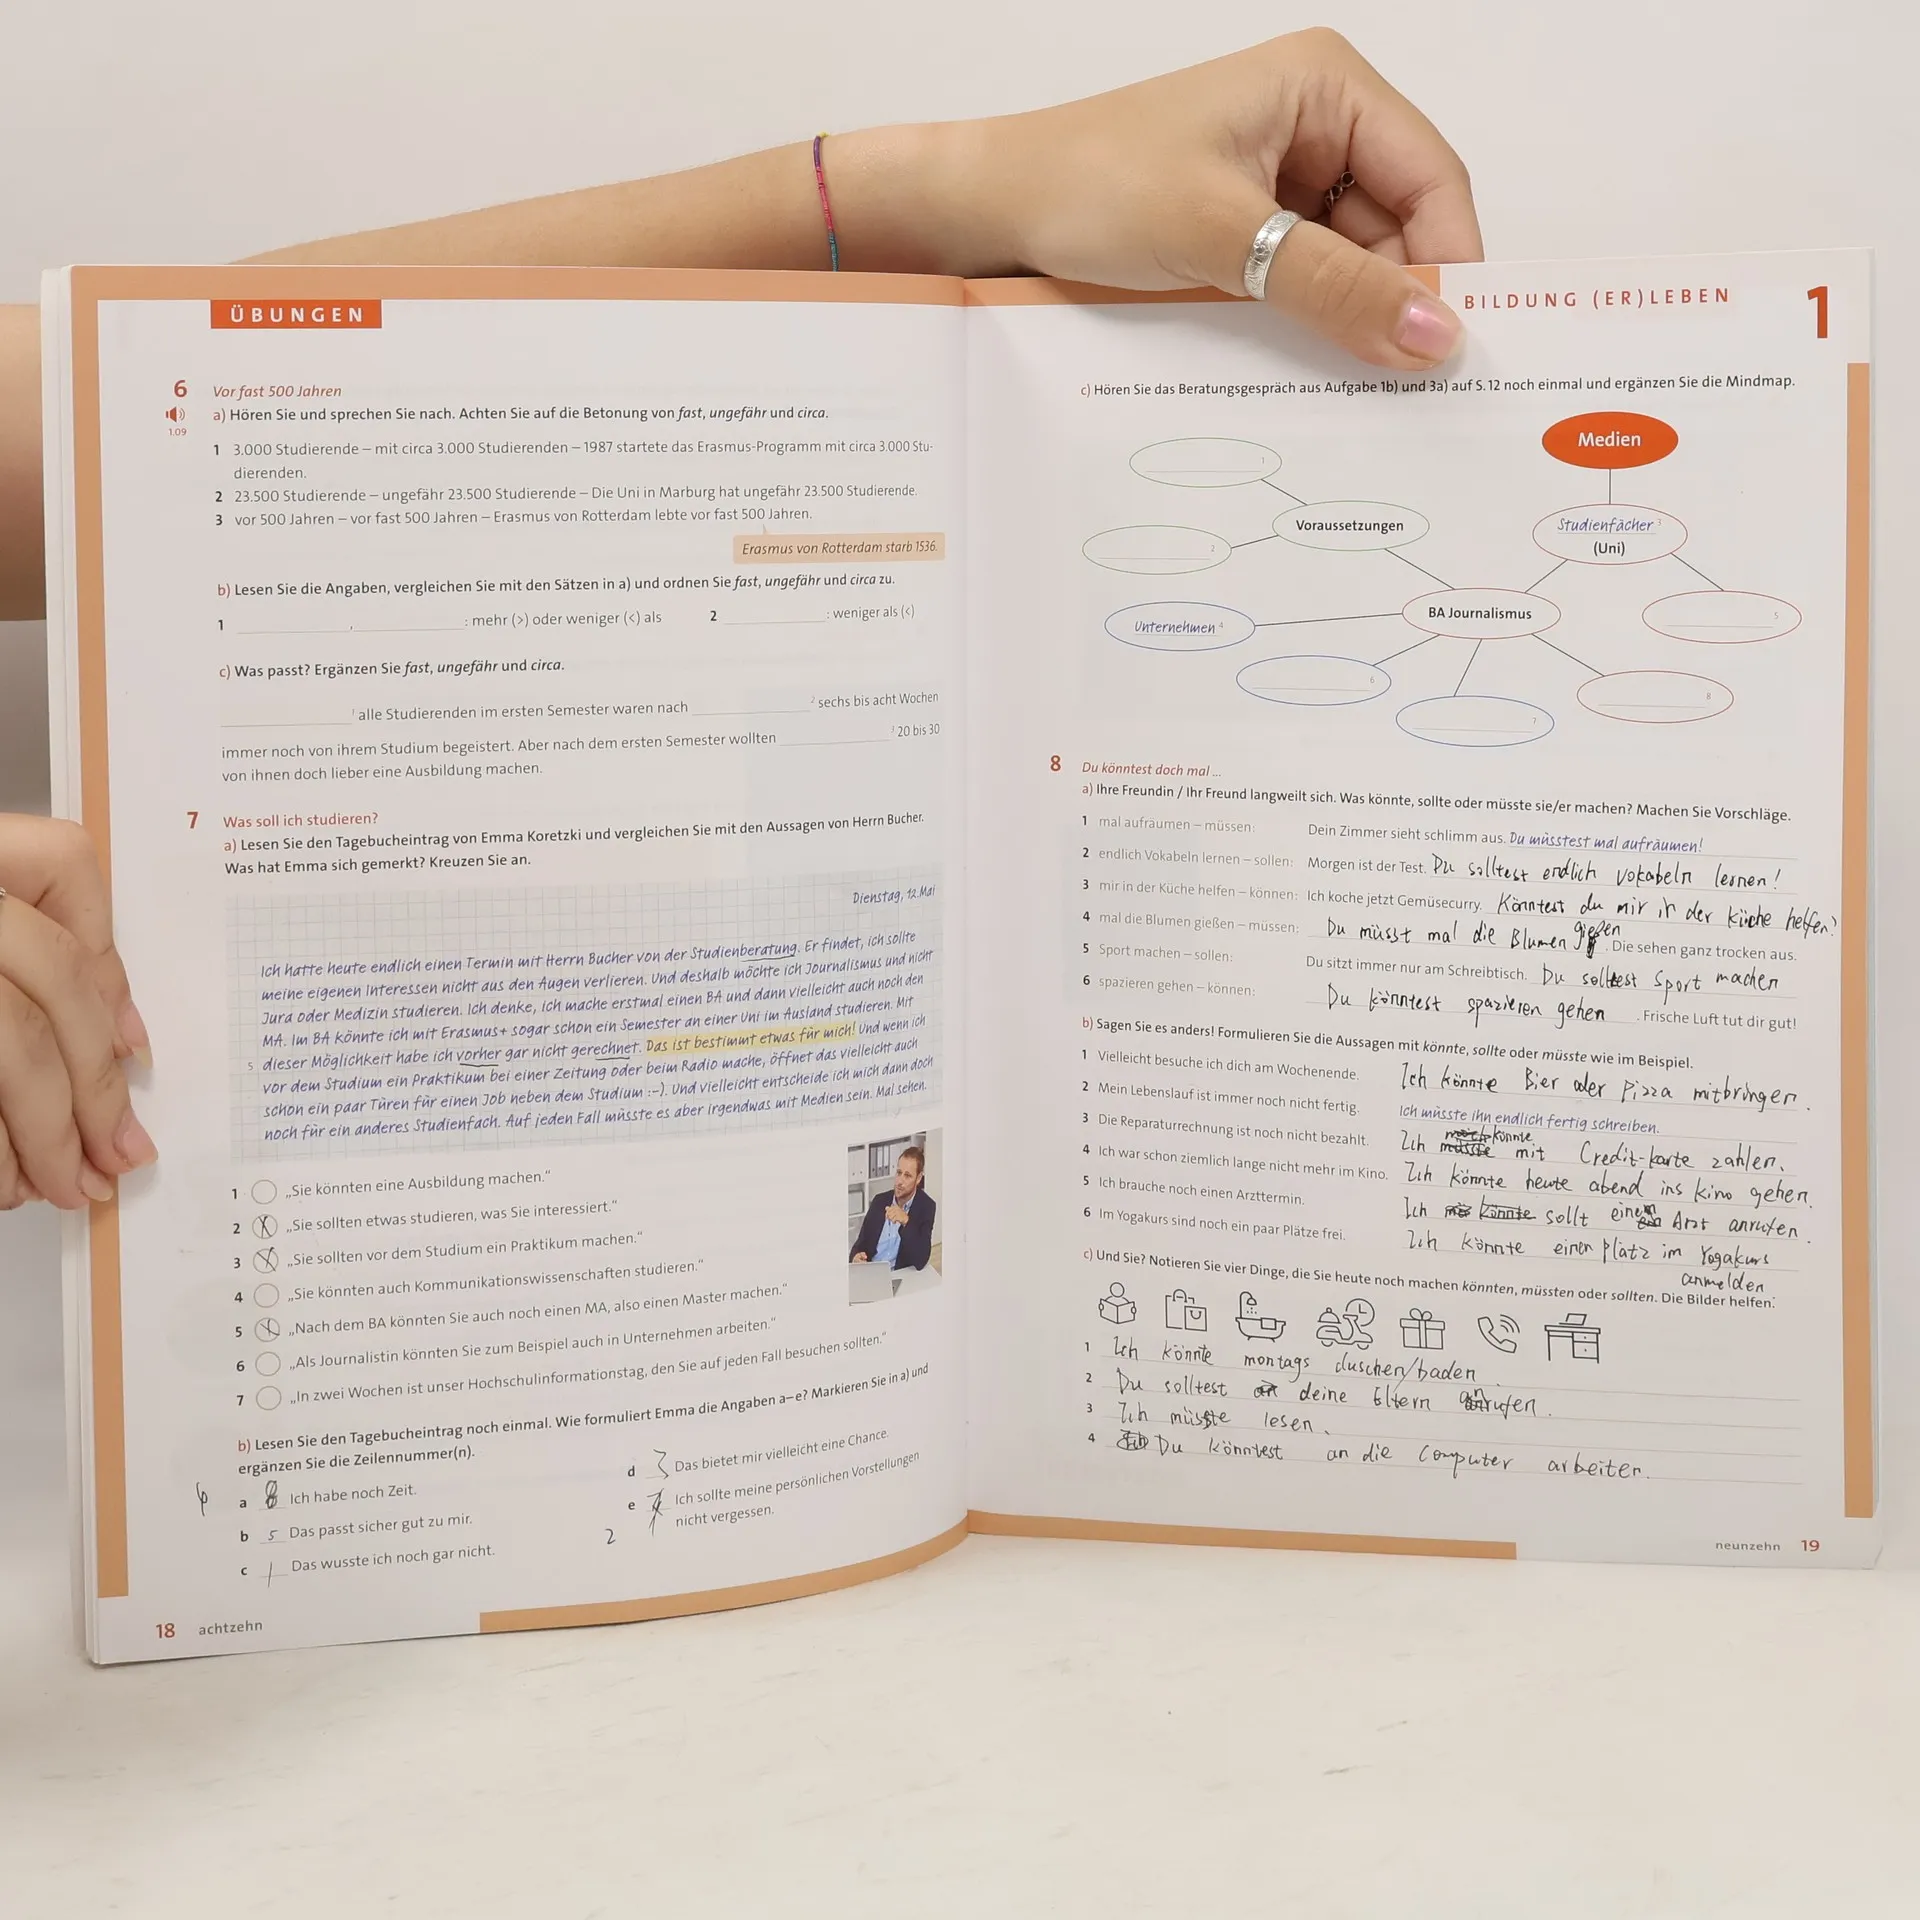 ÜBUNGEN
6 Vor fast 500 Jahren
1.09
a) Hören Sie und sprechen Sie nach. Achten Sie auf die Betonung von fast, ungefähr und circa.
1 3.000 Studierende – mit circa 3.000 Studierenden – 1987 startete das Erasmus-Programm mit circa 3.000 Stu-
dierenden.
2 23.500 Studierende – ungefähr 23.500 Studierende – Die Uni in Marburg hat ungefähr 23.500 Studierende.
3 vor 500 Jahren – vor fast 500 Jahren – Erasmus von Rotterdam lebte vor fast 500 Jahren.
Erasmus von Rotterdam starb 1536.
b) Lesen Sie die Angaben, vergleichen Sie mit den Sätzen in a) und ordnen Sie fast, ungefähr und circa zu.
1 , : mehr (>) oder weniger (<) als 2 : weniger als (<)
c) Was passt? Ergänzen Sie fast, ungefähr und circa.
1 alle Studierenden im ersten Semester waren nach 2 sechs bis acht Wochen
immer noch von ihrem Studium begeistert. Aber nach dem ersten Semester wollten 3 20 bis 30
von ihnen doch lieber eine Ausbildung machen.
7 Was soll ich studieren?
a) Lesen Sie den Tagebucheintrag von Emma Koretzki und vergleichen Sie mit den Aussagen von Herrn Bucher.
Was hat Emma sich gemerkt? Kreuzen Sie an.
Dienstag, 12.Mai
Ich hatte heute endlich einen Termin mit Herrn Bucher von der Studienberatung. Er findet, ich sollte
meine eigenen Interessen nicht aus den Augen verlieren. Und deshalb möchte ich Journalismus und nicht
Jura oder Medizin studieren. Ich denke, ich mache erstmal einen BA und dann vielleicht auch noch den
MA. Im BA könnte ich mit Erasmus+ sogar schon ein Semester an einer Uni im Ausland studieren. Mit
5 dieser Möglichkeit habe ich vorher gar nicht gerechnet. Das ist bestimmt etwas für mich! Und wenn ich
vor dem Studium ein Praktikum bei einer Zeitung oder beim Radio mache, öffnet das vielleicht auch
schon ein paar Türen für einen Job neben dem Studium :-). Und vielleicht entscheide ich mich dann doch
noch für ein anderes Studienfach. Auf jeden Fall müsste es aber irgendwas mit Medien sein. Mal sehen.
1 „Sie könnten eine Ausbildung machen.“
2 X „Sie sollten etwas studieren, was Sie interessiert.“
3 X „Sie sollten vor dem Studium ein Praktikum machen.“
4 „Sie könnten auch Kommunikationswissenschaften studieren.“
5 X „Nach dem BA könnten Sie auch noch einen MA, also einen Master machen.“
6 „Als Journalistin könnten Sie zum Beispiel auch in Unternehmen arbeiten.“
7 „In zwei Wochen ist unser Hochschulinformationstag, den Sie auf jeden Fall besuchen sollten.“
b) Lesen Sie den Tagebucheintrag noch einmal. Wie formuliert Emma die Angaben a–e? Markieren Sie in a) und
ergänzen Sie die Zeilennummer(n).
a 8 Ich habe noch Zeit.
b 5 Das passt sicher gut zu mir.
c 1 Das wusste ich noch gar nicht.
d 3 Das bietet mir vielleicht eine Chance.
e Ich sollte meine persönlichen Vorstellungen
2 nicht vergessen.
18 achtzehn
BILDUNG (ER)LEBEN 1
c) Hören Sie das Beratungsgespräch aus Aufgabe 1b) und 3a) auf S. 12 noch einmal und ergänzen Sie die Mindmap.
Medien
1
Voraussetzungen
Studienfächer 3
(Uni)
2
BA Journalismus
Unternehmen 4
5
6
7
8
8 Du könntest doch mal ...
a) Ihre Freundin / Ihr Freund langweilt sich. Was könnte, sollte oder müsste sie/er machen? Machen Sie Vorschläge.
1 mal aufräumen – müssen: Dein Zimmer sieht schlimm aus. Du müsstest mal aufräumen!
2 endlich Vokabeln lernen – sollen: Morgen ist der Test. Du solltest endlich vokabeln lernen!
3 mir in der Küche helfen – können: Ich koche jetzt Gemüsecurry. Könntest du mir in der Küche helfen?
4 mal die Blumen gießen – müssen: Du müsst mal die Blumen gießen. Die sehen ganz trocken aus.
5 Sport machen – sollen: Du sitzt immer nur am Schreibtisch. Du solltest Sport machen
6 spazieren gehen – können: Du könntest spazieren gehen. Frische Luft tut dir gut!
b) Sagen Sie es anders! Formulieren Sie die Aussagen mit könnte, sollte oder müsste wie im Beispiel.
1 Vielleicht besuche ich dich am Wochenende. Ich könnte Bier oder Pizza mitbringen.
2 Mein Lebenslauf ist immer noch nicht fertig. Ich müsste ihn endlich fertig schreiben.
3 Die Reparaturrechnung ist noch nicht bezahlt. Ich könnte mit Credit-karte zahlen.
4 Ich war schon ziemlich lange nicht mehr im Kino. Ich könnte heute abend ins kino gehen.
5 Ich brauche noch einen Arzttermin. Ich könnte sollt einen Arzt anrufen.
6 Im Yogakurs sind noch ein paar Plätze frei. Ich könnte einen platz im Yogakurs
anmelden
c) Und Sie? Notieren Sie vier Dinge, die Sie heute noch machen könnten, müssten oder sollten. Die Bilder helfen.
1 Ich könnte montags duschen/baden.
2 Du solltest deine Eltern anrufen.
3 Ich müsste lesen.
4 Du könntest an die Computer arbeiten.
neunzehn 19